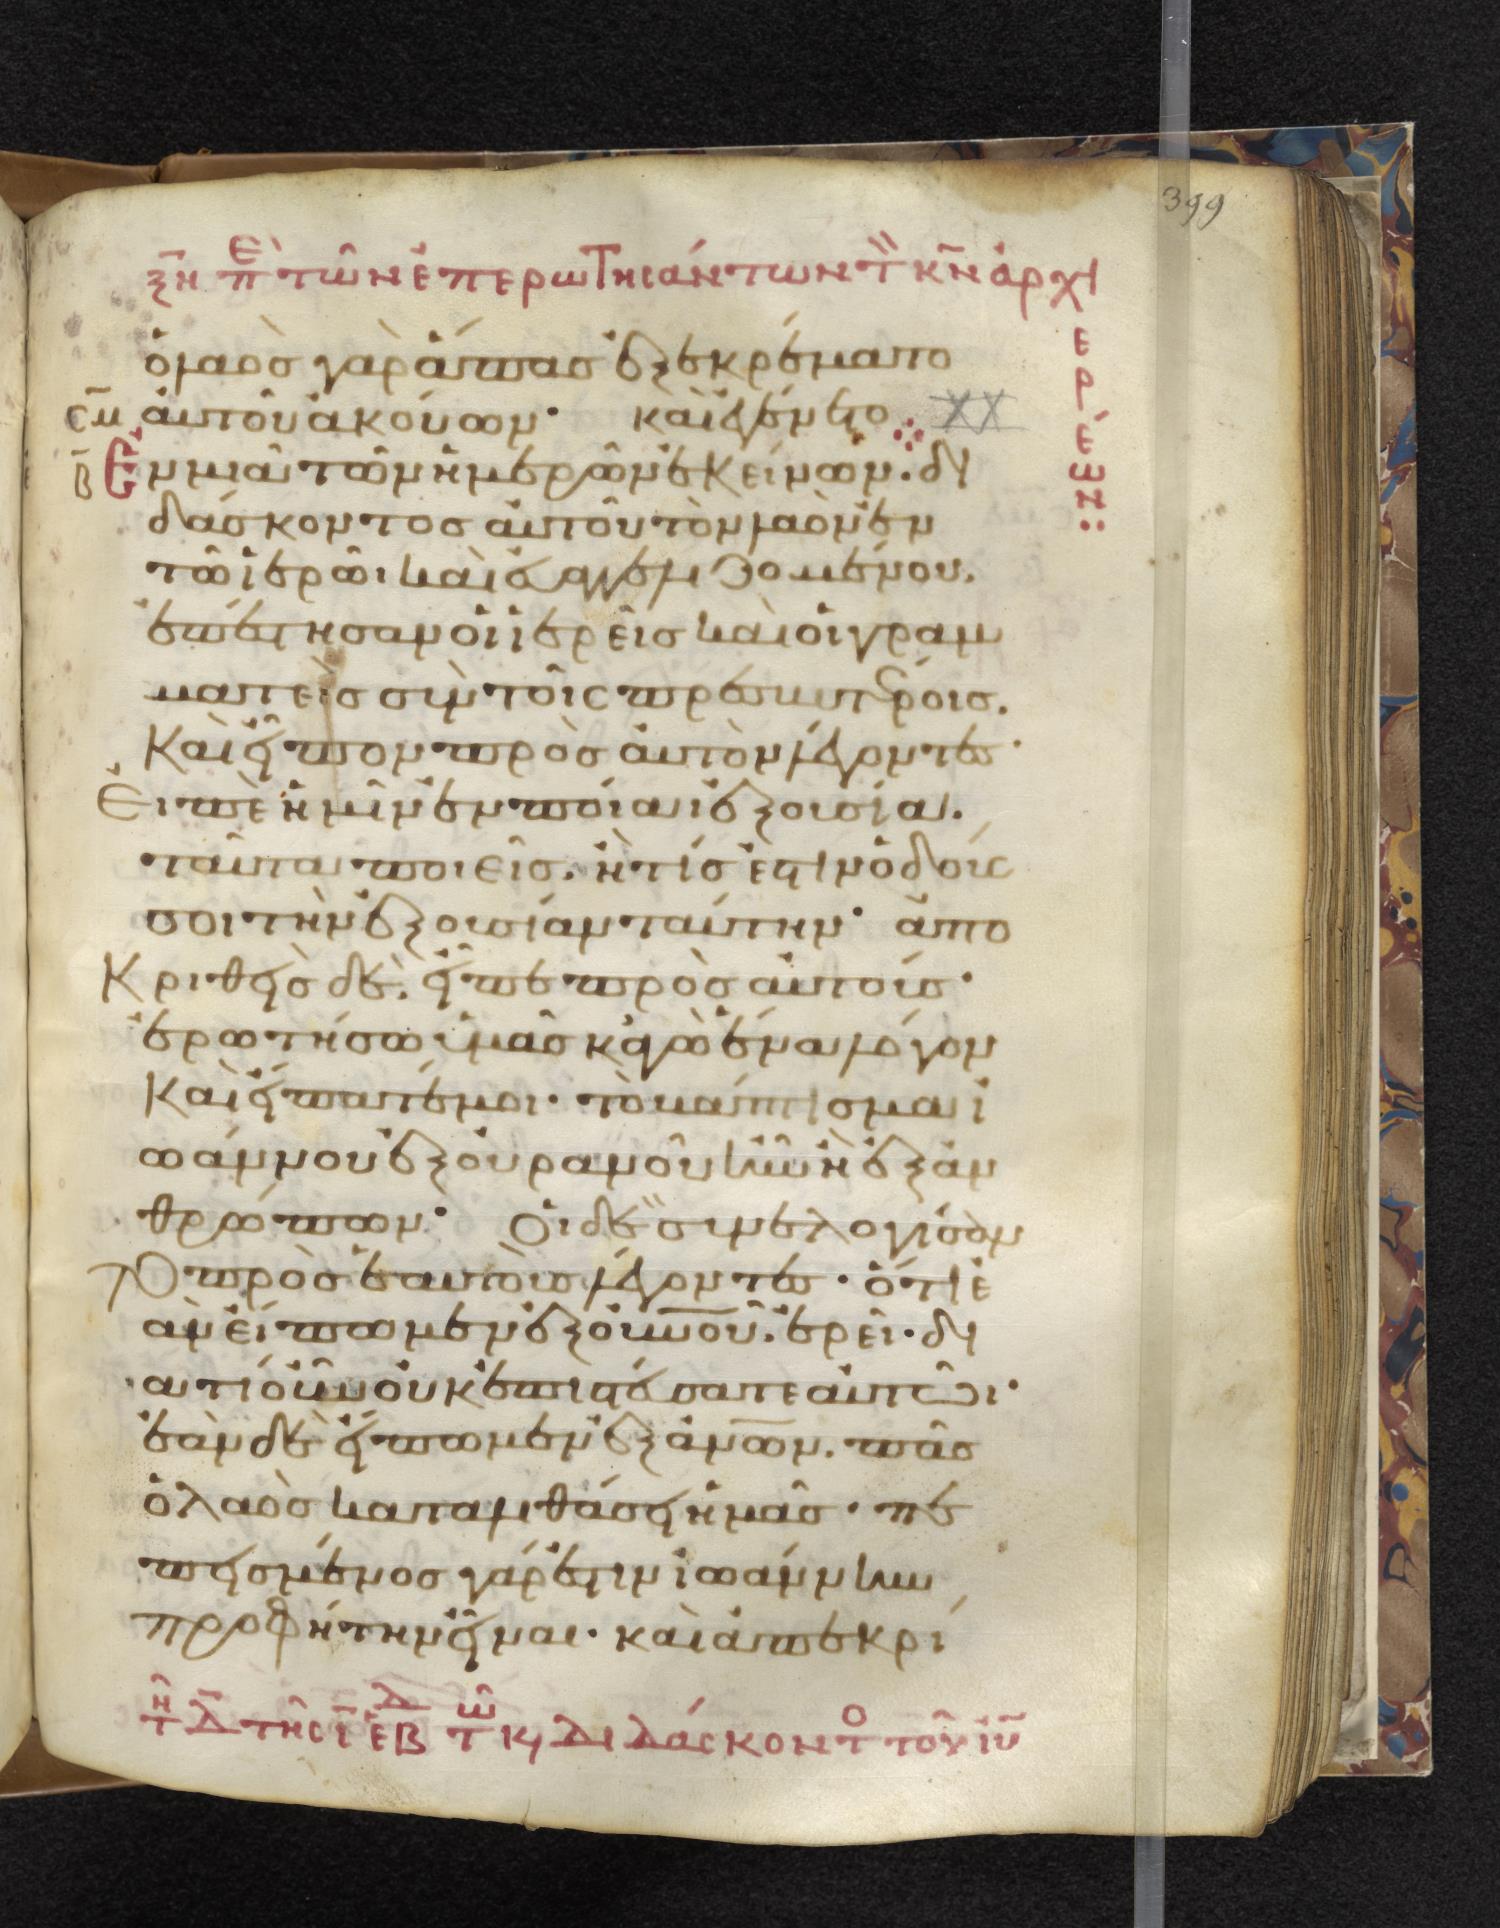 399
ξη πε τῶν ἐπερωτησάντων τ κν ἀρχι
ερέων:
ὁ λαὸς γὰρ ἅπας ἐξεκρέματο
αὐτοῦ ἀκούων· καὶ ἐγένετο XX
Ἐν μιᾶ τῶν ἡμερῶν ἐκείνων. δι
δάσκοντος αὐτοῦ τὸν λαὸν ἐν
τῶ ἱερῶι καὶ εὐαγγελιζομένου.
ἐπέστησαν οἱ ἱερεῖς καὶ οἱ γραμ
ματεῖς σὺν τοῖς πρεσβυτέροις.
Καὶ εἶπον πρὸς αὐτὸν λέγοντες·
Εἰπὲ ἡμῖν ἐν ποία ἐξουσία.
ταῦτα ποιεῖς. ἢ τίς ἐστιν ὁ δούς
σοι τὴν ἐξουσίαν ταύτην· ἀπο
Κριθεὶς δὲ. εἶπε πρὸς αὐτούς·
ἐρωτήσω ὑμᾶς κἀγὼ ἕνα λόγον
Καὶ εἴπατέ μοι· τὸ βάπτισμα ἰ
ωάννου ἐξ οὐρανοῦ ἦν ἢ ἐξ ἀν
θρώπων· Οἱ δὲ συνελογίσαν
το πρὸς ἑαυτοὺς λέγοντες· ὅτι ἐ
ὰν εἴπωμεν ἐξ οὐνοῦ. ἐρεῖ· δι
ατί οὖν οὐκ ἐπιστεύσατε αὐτῶι·
ἐὰν δὲ εἴπωμεν ἐξ ἀνων. πᾶς
ὁ λαὸς καταλιθάσει ἡμᾶς· πε
πεισμένος γάρ ἐστιν ἰωάννην
προφήτην εἶναι· καὶ ἀπεκρί
τη Δ τῆς ι ἑβδ τω κω διδάσκοντο τοῦ ιυ